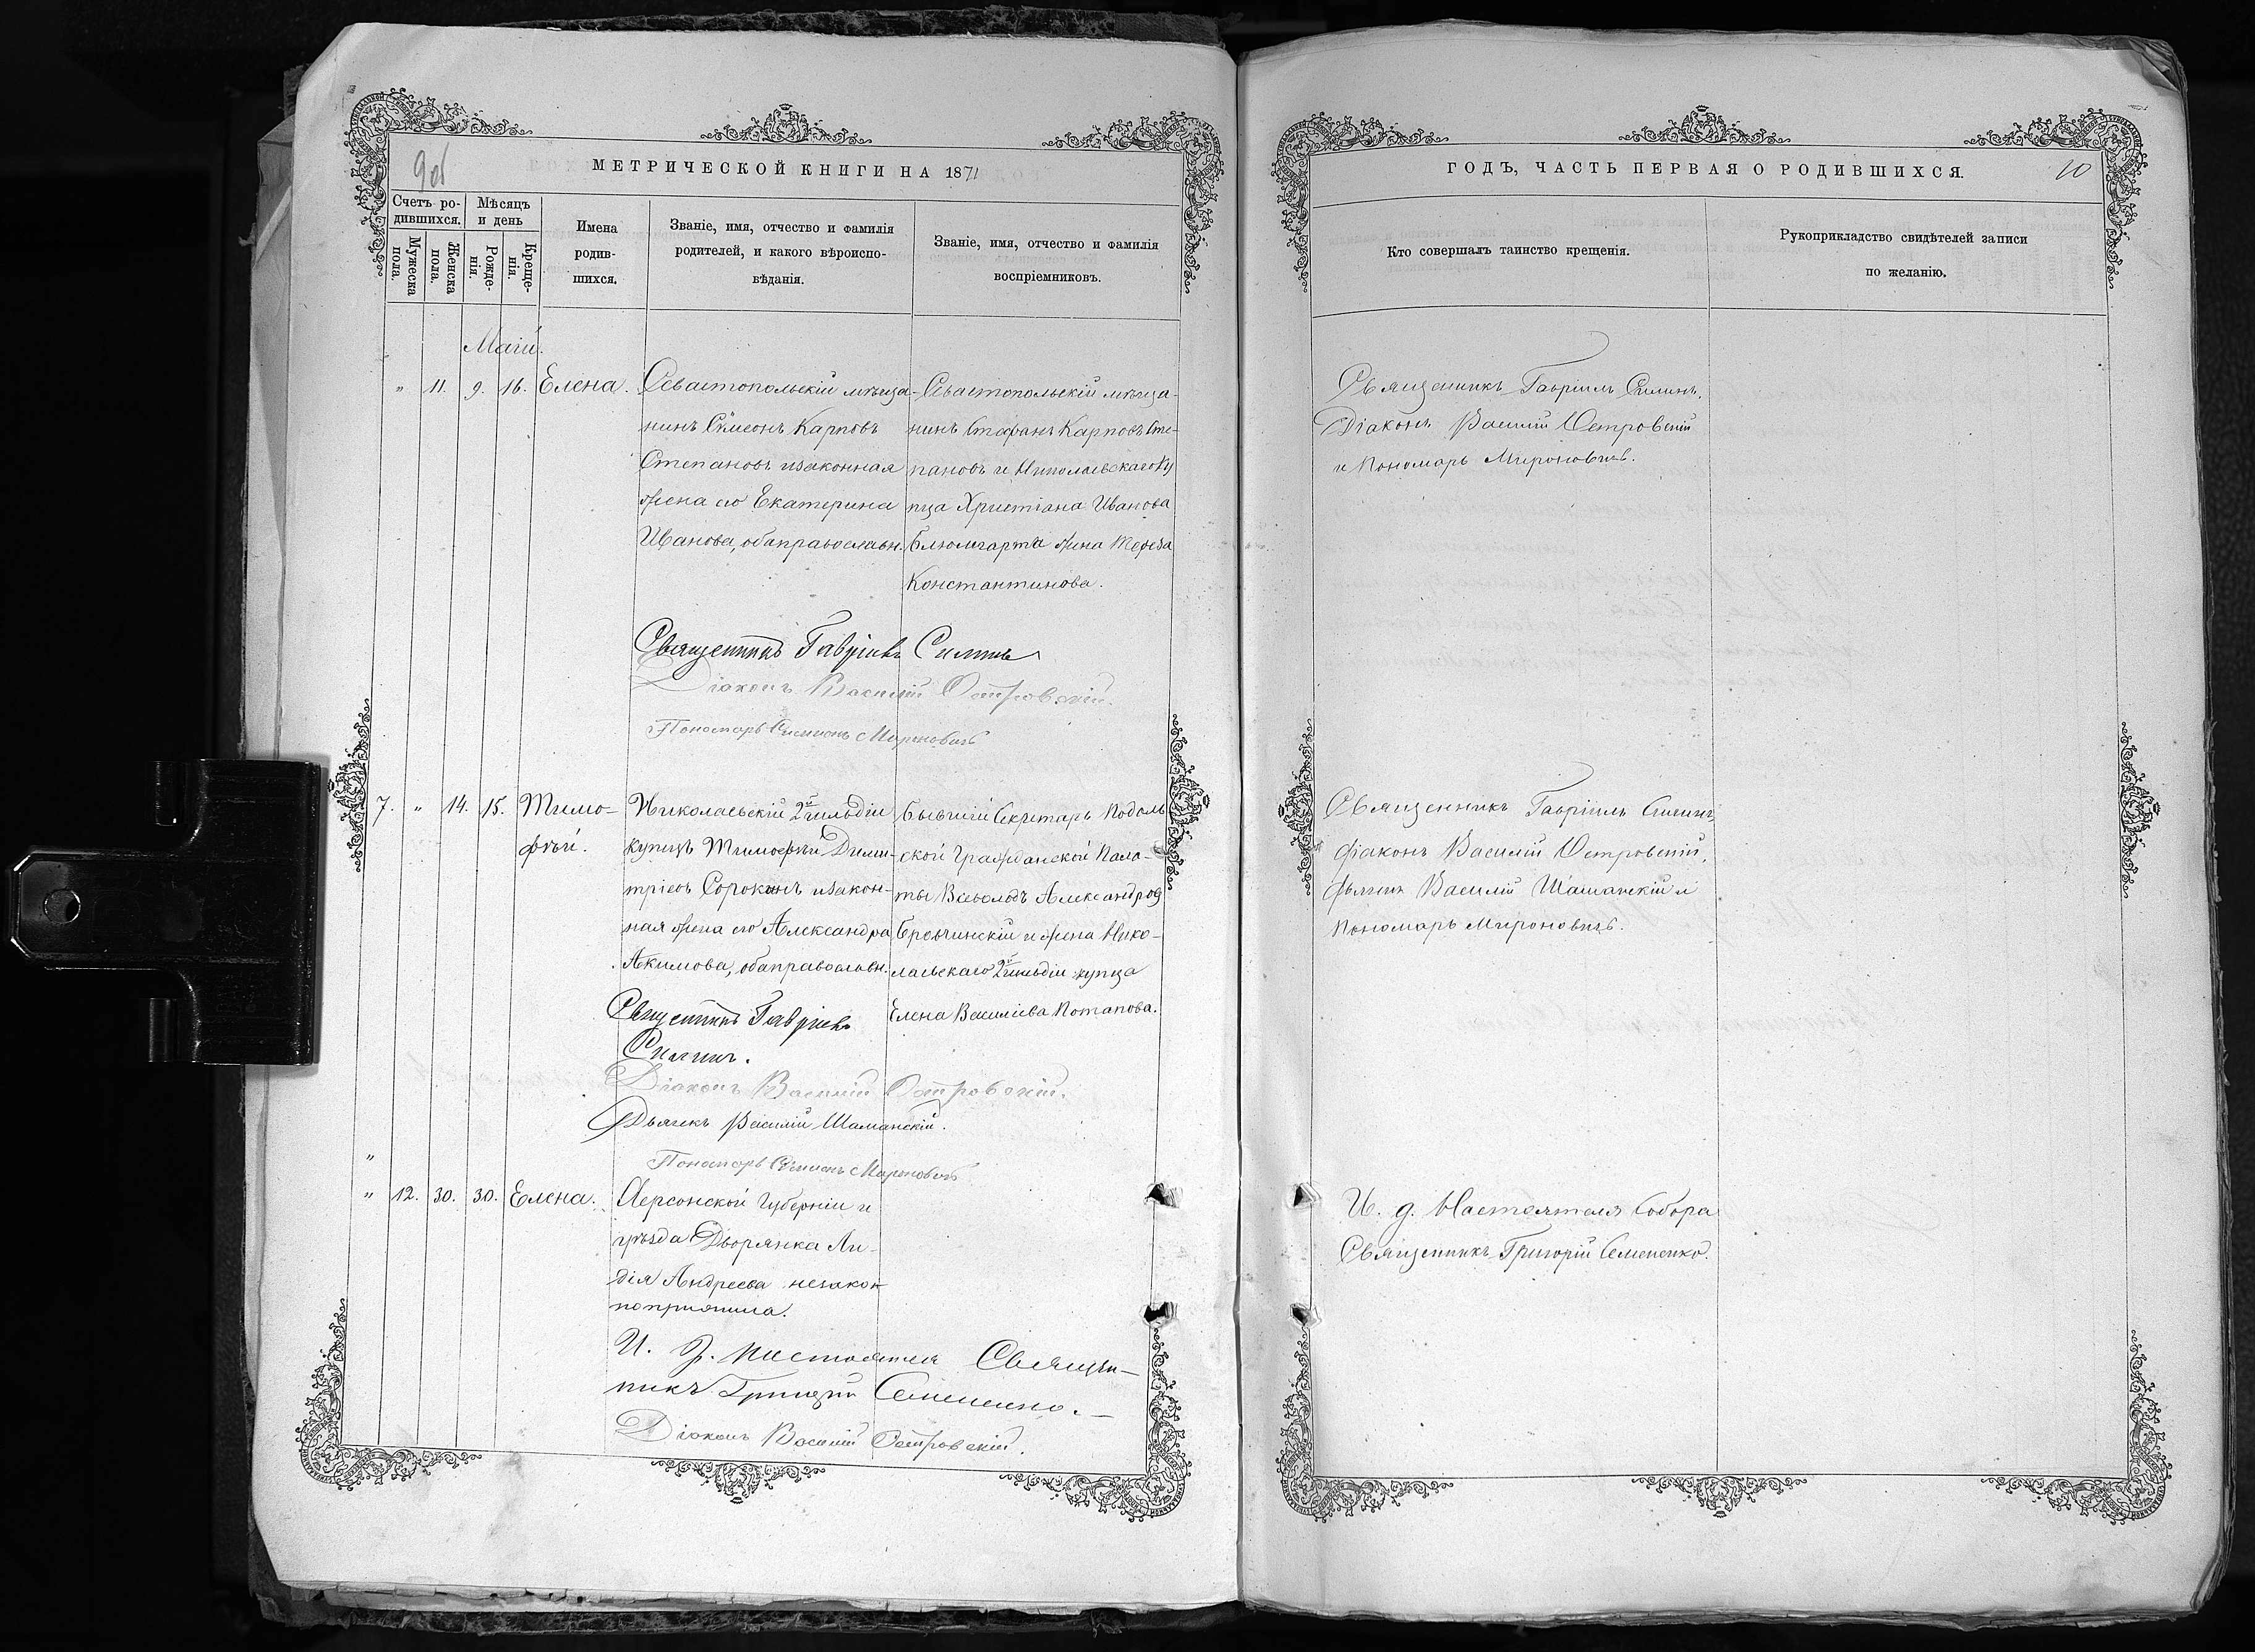 9об
МЕТРИЧЕСКОЙ КНИГИ НА 1871
Счетъ ро-
дившихся.
Мѣсяцъ
и день
Мужеска
пола.
Женска
пола.
Рожде-
нія.
Креще-
нія.
Имена
родив-
шихся.
Званіе, имя, отчество и фамилія
родителей, и какого вѣроиспо-
вѣданія.
Званіе, имя, отчество и фамилія
воспріемниковъ.
Маій.
" 11. 9. 16. Елена.
Севастопольскій мѣща-
нинъ Сѵмеонъ Карповъ
Степановъ и законная
жена его Екатерина
Иванова, оба православн.
Севастопольскій мѣща-
нинъ Стефанъ Карповъ Сте-
пановъ и Николаевскаго ку
пца Христіана Иванова
Блюмгарта жена Тереза
Константинова.
Священникъ Гавріилъ Силинъ
Діаконъ Василій Островскій.
Пономарь Симеонъ Мироновичъ
7. " 14. 15. Тимо-
фѣй.
Николаевскій 2й гильдіи
купецъ Тимофѣй Дими-
тріевъ Сорокинъ и закон-
ная жена его Александра
Акимова, оба православн.
Бывшій Секретарь Подоль
ской Гражданской Пала-
ты Всеволодъ Александров
Бровчинскій и жена Нико-
лаевскаго 2й гильдіи купца
Елена Василіева Потапова.
Священникъ Гавріилъ
Силинъ.
Діаконъ Василій Островскій.
Дьячекъ Василій Шаманскій.
"
Пономарь Симеонъ Мироновичъ
" 12. 30. 30. Елена.
Херсонской Губерніи и
уѣзда Дворянка Ли-
дія Андреева незакон
но прижила.
И. д. Настоятеля Священ-
никъ Григорій Семененко.
Діаконъ Василій Островскій.
ГОДЪ, ЧАСТЬ ПЕРВАЯ О РОДИВШИХСЯ.
10
Кто совершалъ таинство крещенія.
Рукоприкладство свидѣтелей записи
по желанію.
Священникъ Гавріилъ Силинъ,
Діаконъ Василій Островскій
и Пономарь Мироновичъ.
Священникъ Гавріилъ Силинъ,
Діаконъ Василій Островскій,
Дьячекъ Василій Шаманскій и
Пономарь Мироновичъ.
И. д. Настоятеля Собора
Священникъ Григорій Семененко.